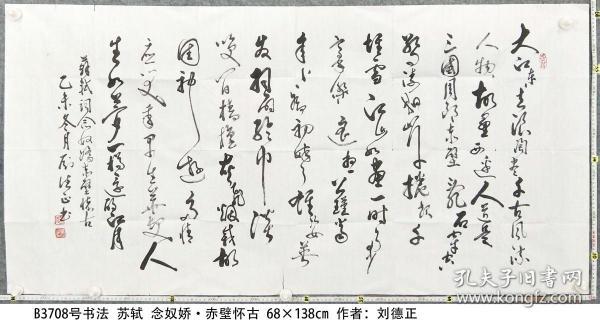 大江东去浪淘尽千古风流
人物故垒西边人道是
三國周郎赤壁乱石穿空
惊涛拍岸捲起千
堆雪江山如画一时多少
豪杰遥想公瑾当
年小乔初嫁了雄姿英
发羽扇纶巾谈
笑间樯橹灰飞烟灭故
国神游多情
应笑我早生华发人
生如梦一樽还酹江月
苏轼词念奴娇赤壁怀古
乙未冬月刘德正书
孔夫子旧书网
B3708号书法 苏轼 念奴娇·赤壁怀古 68×138cm 作者: 刘德正